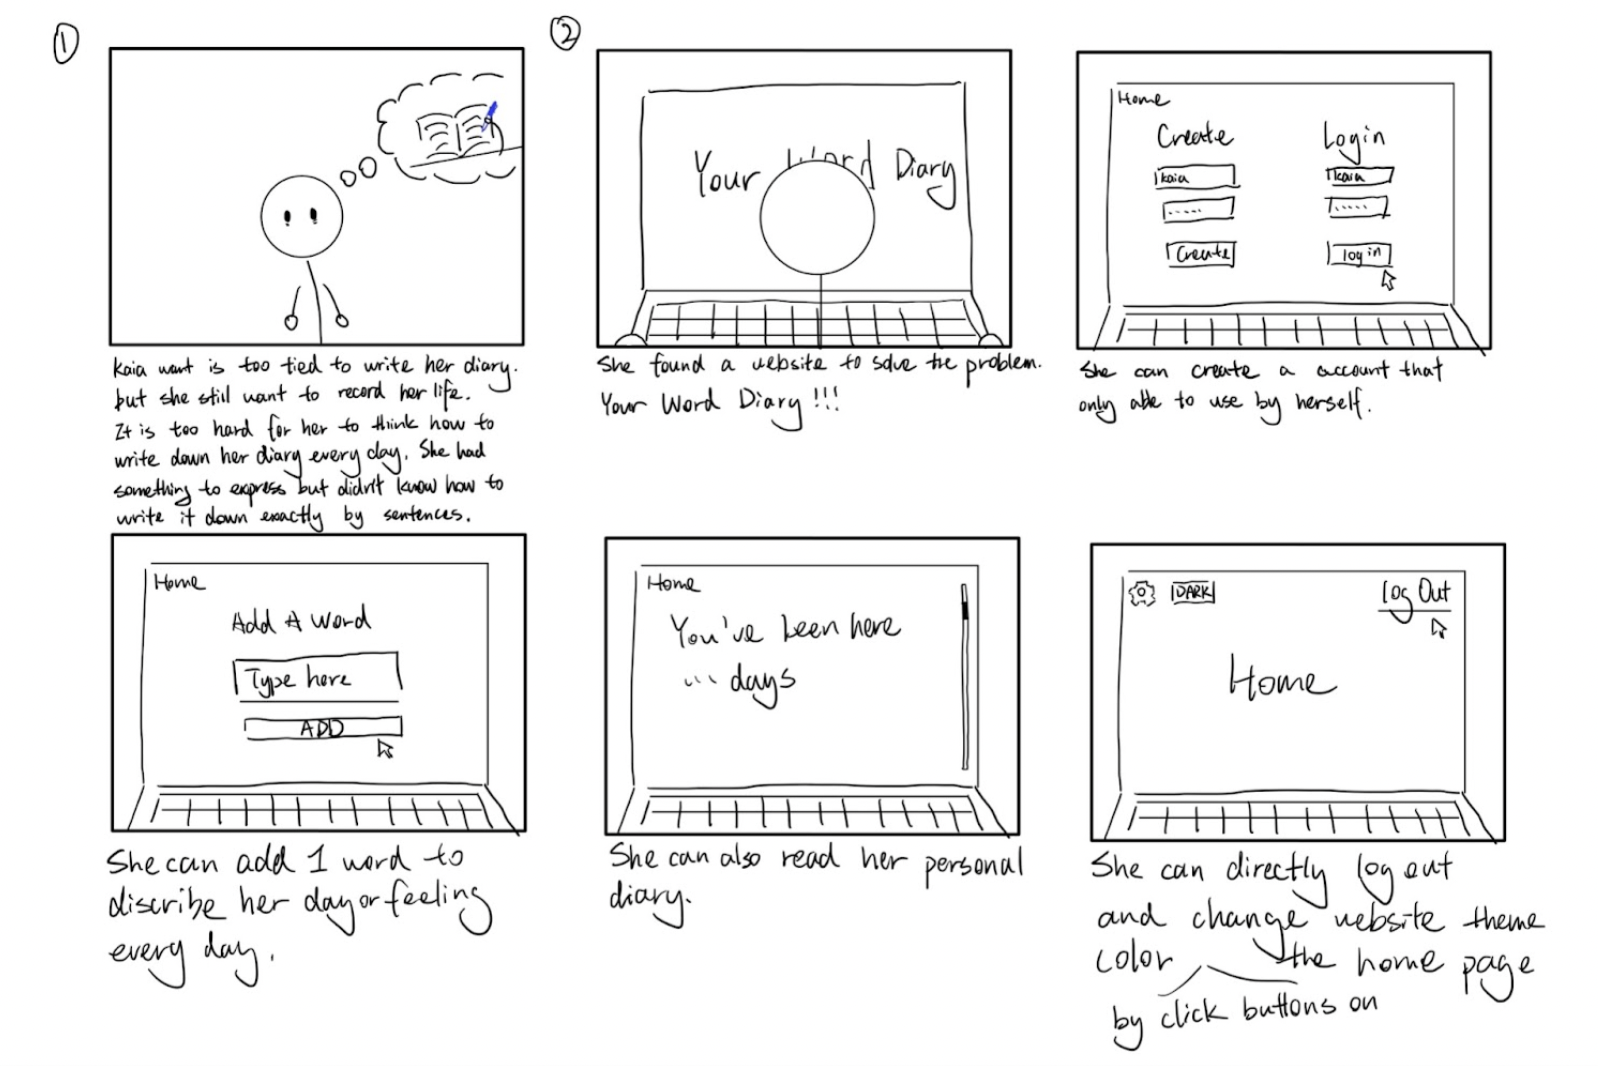 1
Kaia want is too tied to write her diary.
but she still want to record her life.
It is too hard for her to think how to
write down her diary every day. She had
something to express but didn't know how to
write it down exactly by sentences.
2
Your Word Diary
She found a website to solve the problem.
Your Word Diary !!!
Home
Create
Login
kaia
kaia
.....
.....
Create
log in
She can create a account that
only able to use by herself.
Home
Add A word
Type here
ADD
She can add 1 word to
discribe her day or feeling
every day.
Home
You've been here
... days
She can also read her personal
diary.
DARK
log Out
Home
She can directly log out
and change website theme
color
by click buttons on
the home page